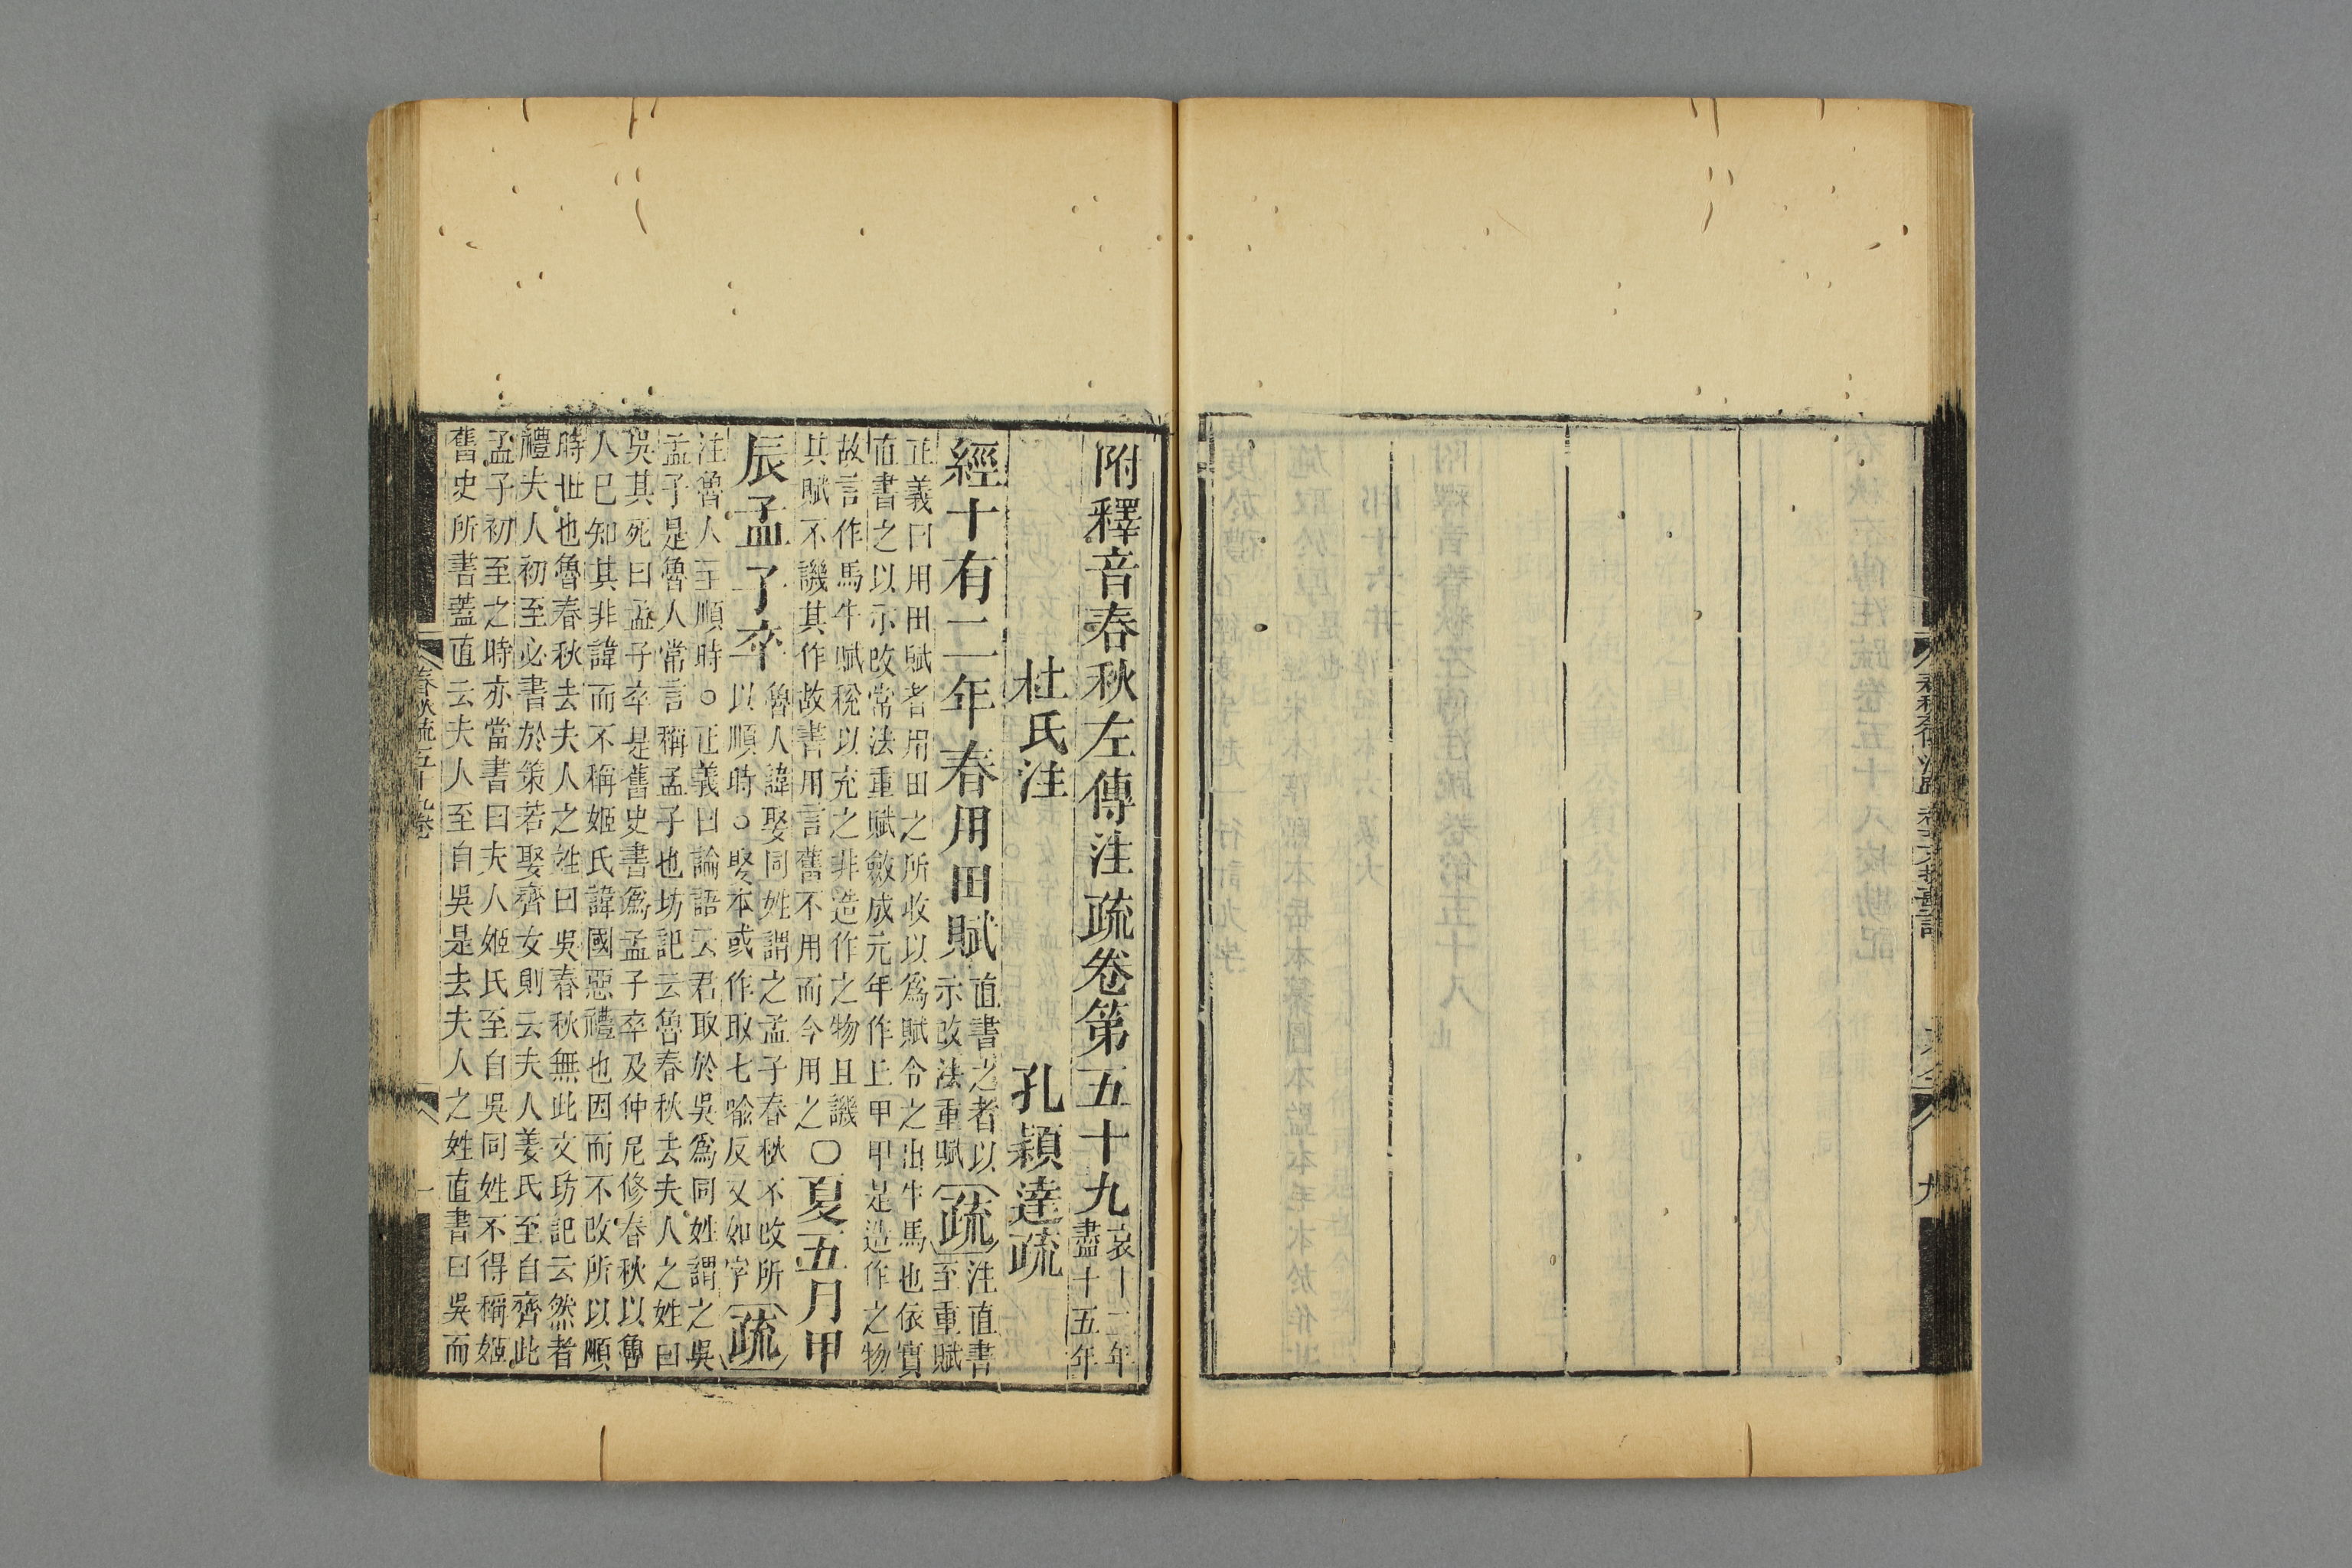 附釋音春秋左傳注疏卷第五十九哀十二年
盡十五年
杜氏注
孔穎達疏
經十有二年春用田賦直書之者以
示改法重賦疏注直書
至重賦
正義曰用田賦者用田之所收以爲賦令之出牛馬也依實
直書之以示改常法重賦斂成元年作丘甲甲是造作之物
故言作馬牛賦稅以充之非造作之物且譏
其賦不譏其作故書用言舊不用而今用之○夏五月甲
辰孟子卒魯人諱娶同姓謂之孟子春秋不改所
以順時○娶本或作取七喻反又如字疏
注魯人至順時○正義曰論語云君取於吳爲同姓謂之吳
孟子是魯人常言稱孟子也坊記云魯春秋去夫人之姓曰
吳其死曰孟子卒是舊史書爲孟子卒及仲尼修春秋以魯
人已知其非諱而不稱姬氏諱國惡禮也因而不改所以順
時世也魯春秋去夫人之姓曰吳春秋無此文坊記云然者
禮夫人初至必書於策若娶齊女則云夫人姜氏至自齊此
孟子初至之時亦當書曰夫人姬氏至自吳同姓不得稱姬
舊史所書蓋直云夫人至自吳是去夫人之姓直書曰吳而
春秋疏五十九卷
一